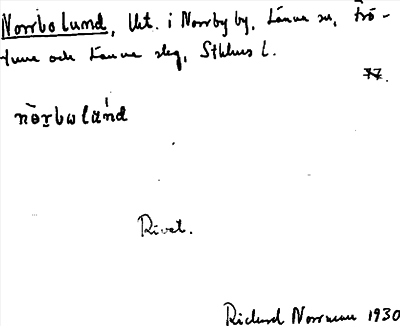 Norrbo lund, Utt. i Norrby by, Länna sn, Frö-
tuna och Länna slg, Sthlms l.
77.
nòrbωlúnd
Rivet.
Richard Norrman 1930